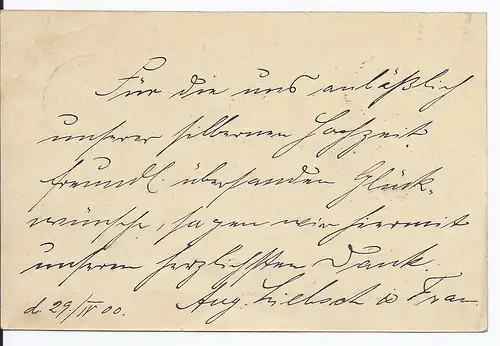 Für die uns anläßlich
unserer silbernen Hochzeit
freundl. übersandten Glück-
wünsche, sagen wir hiermit
unseren herzlichsten Dank.
d. 29./IV 00. Aug. Liebsch u Frau